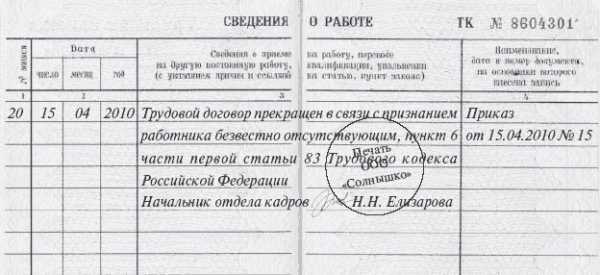 СВЕДЕНИЯ О РАБОТЕ ТК № 8604301
№ записи
Дата
число месяц год
Сведения о приеме на работу, переводе
на другую постоянную работу, квалификации, увольнении
(с указанием причин и ссылкой на статью, пункт закона)
Наименование,
дата и номер документа,
на основании которого
внесена запись
1 2 3 4
20 15 04 2010 Трудовой договор прекращен в связи с признанием Приказ
работника безвестно отсутствующим, пункт 6 от 15.04.2010 № 15
части первой статьи 83 Трудового кодекса
Российской Федерации
Начальник отдела кадров Н.Н. Елизарова
Печать
ООО
«Солнышко»